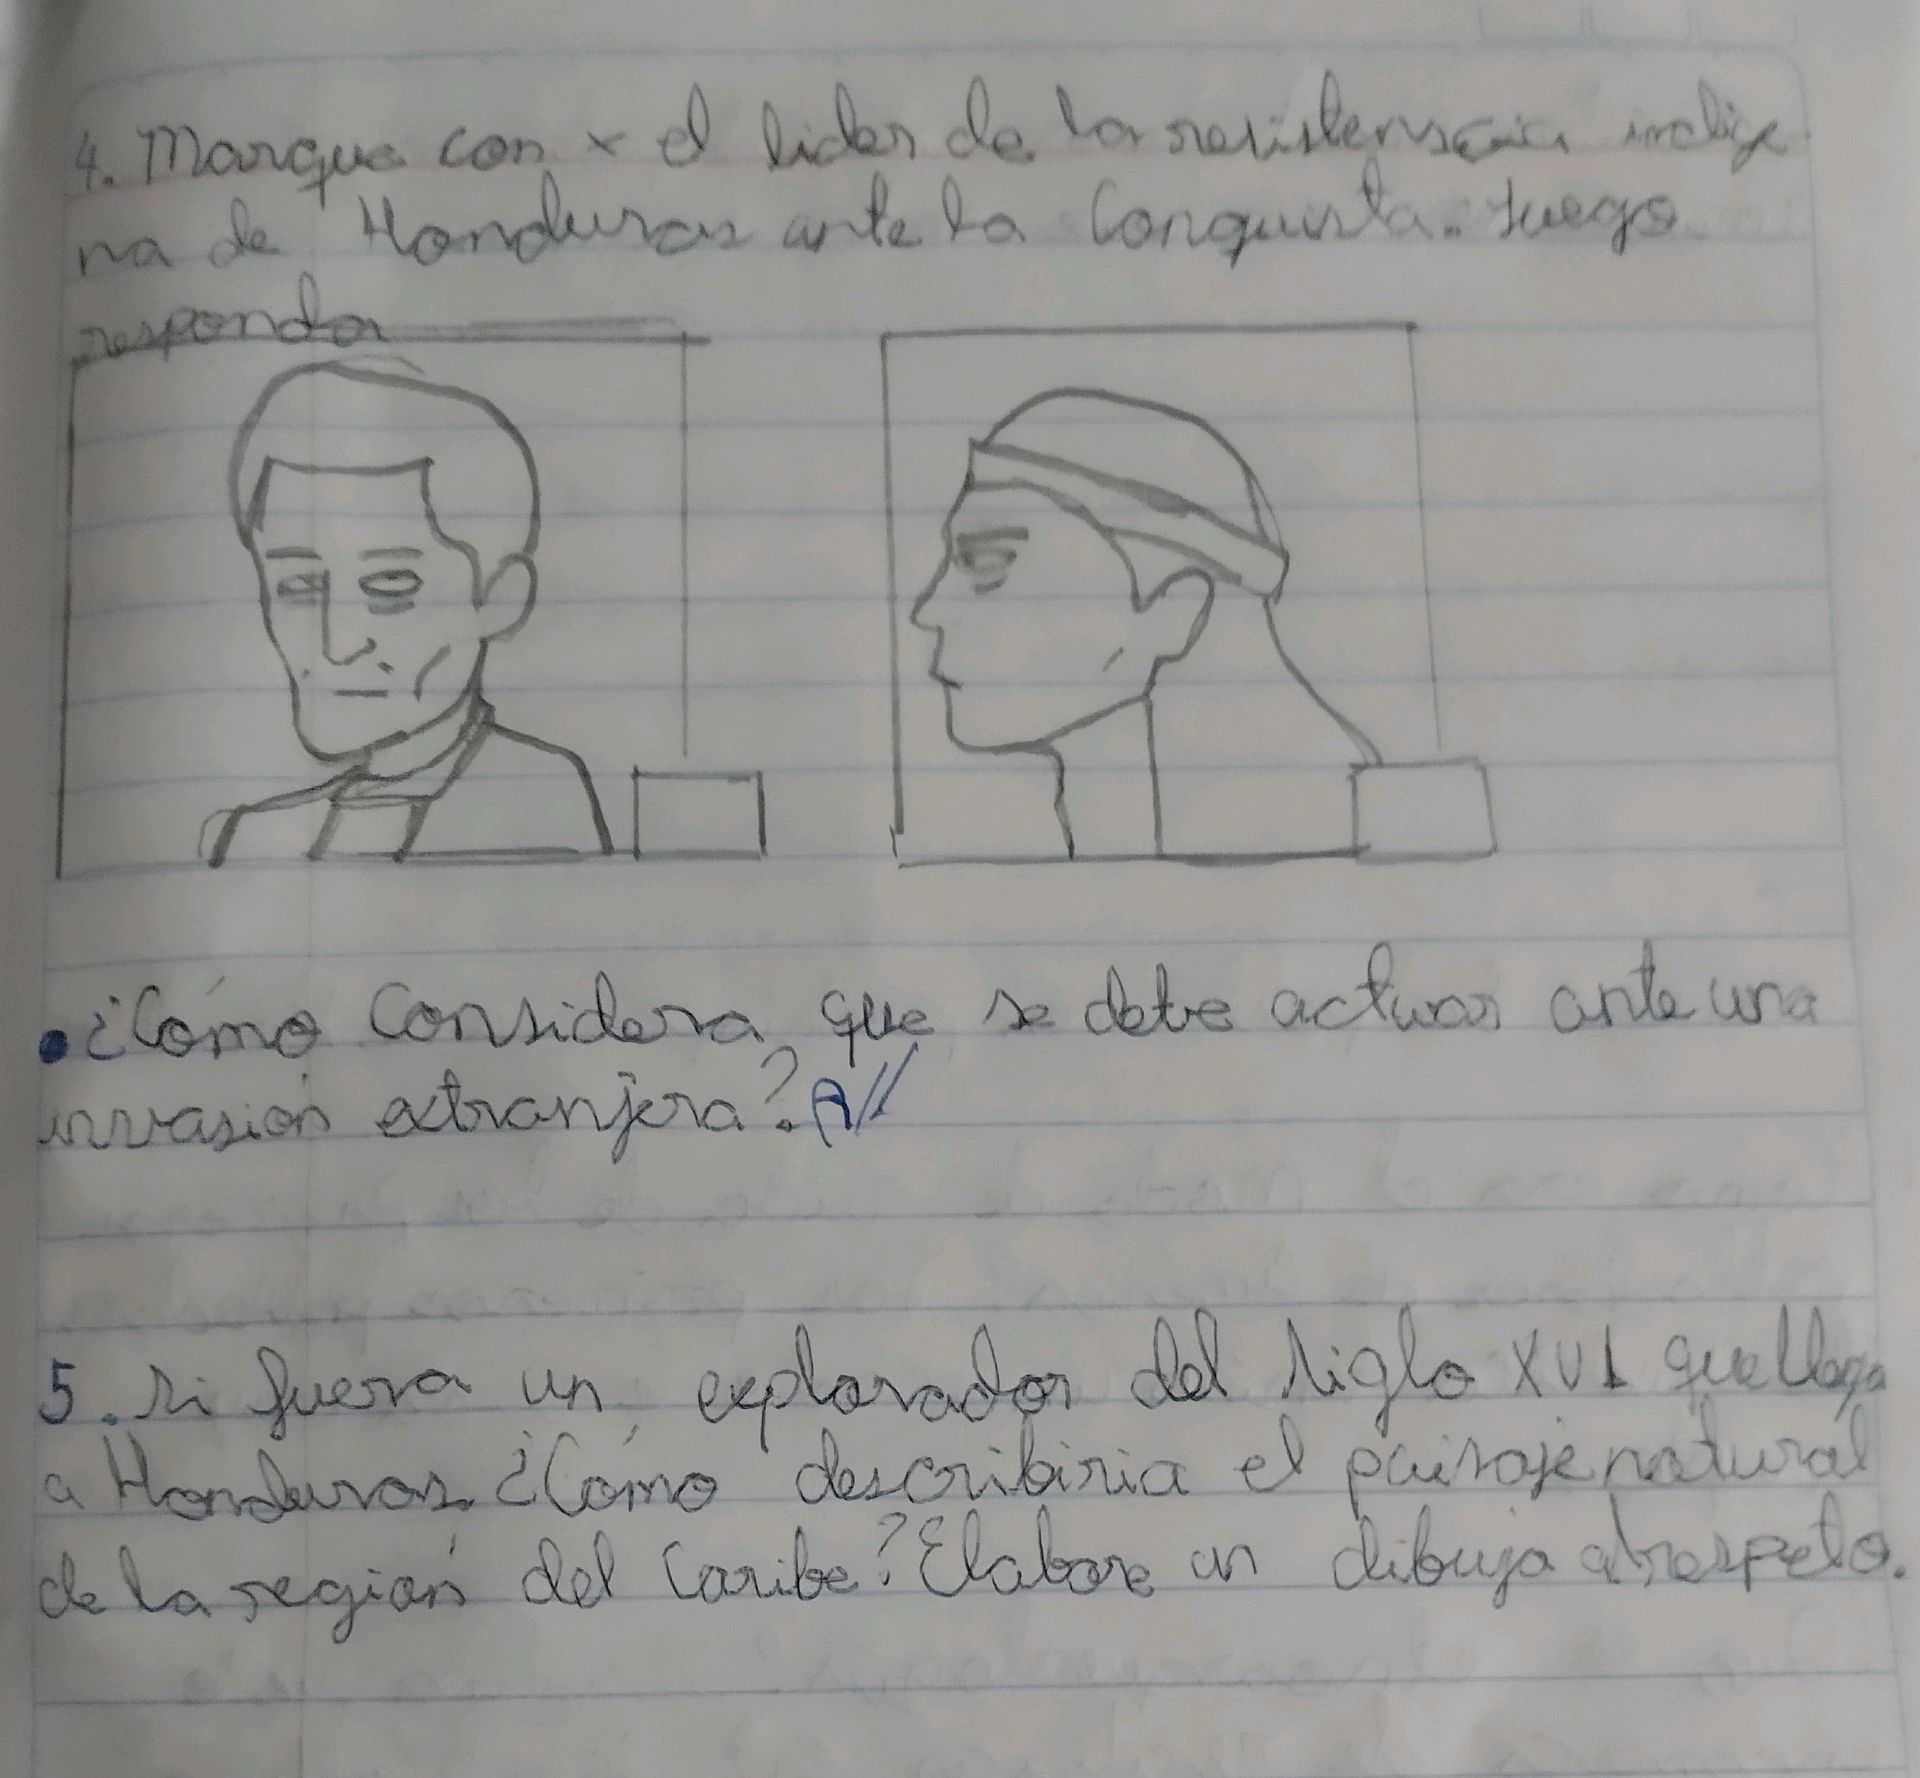 4. Marque con x el lider de la resistenscia indige
na de Honduras ante la Conquista. luego
responda
• ¿Cómo Considera que se debe actuar ante una
invasión extranjera? R//
5. si fuera un explorador del siglo XVI que llega
a Honduras. ¿Cómo describiria el paisaje natural
de la región del Caribe? Elabore un dibujo al respeto.